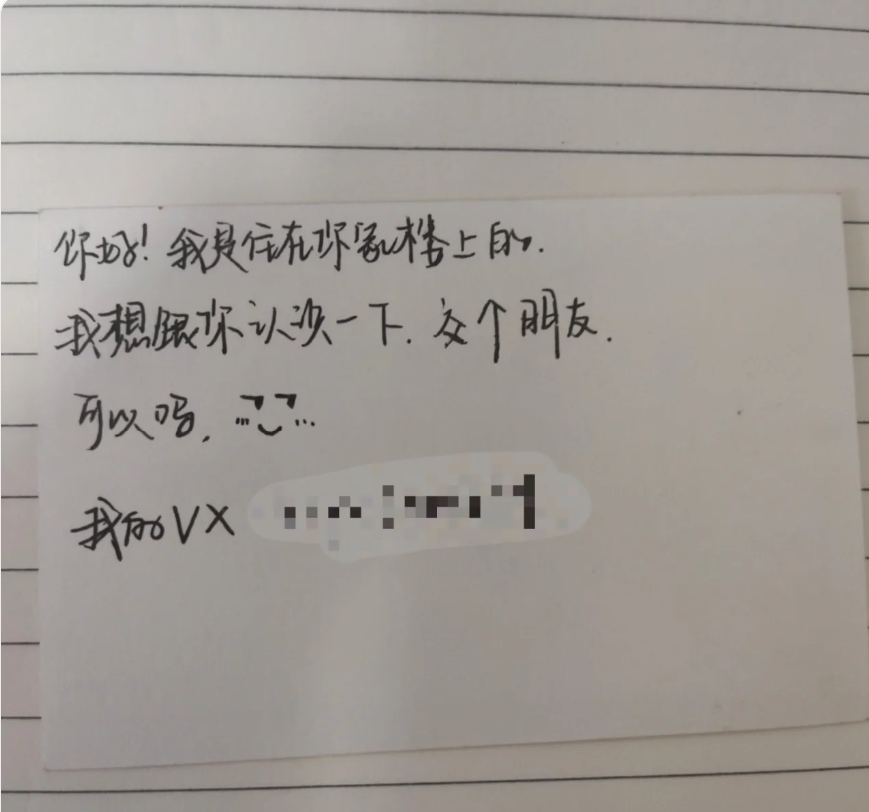 你好！我是住在你家楼上的.
我想跟你认识一下.交个朋友.
可以吗.
我的VX